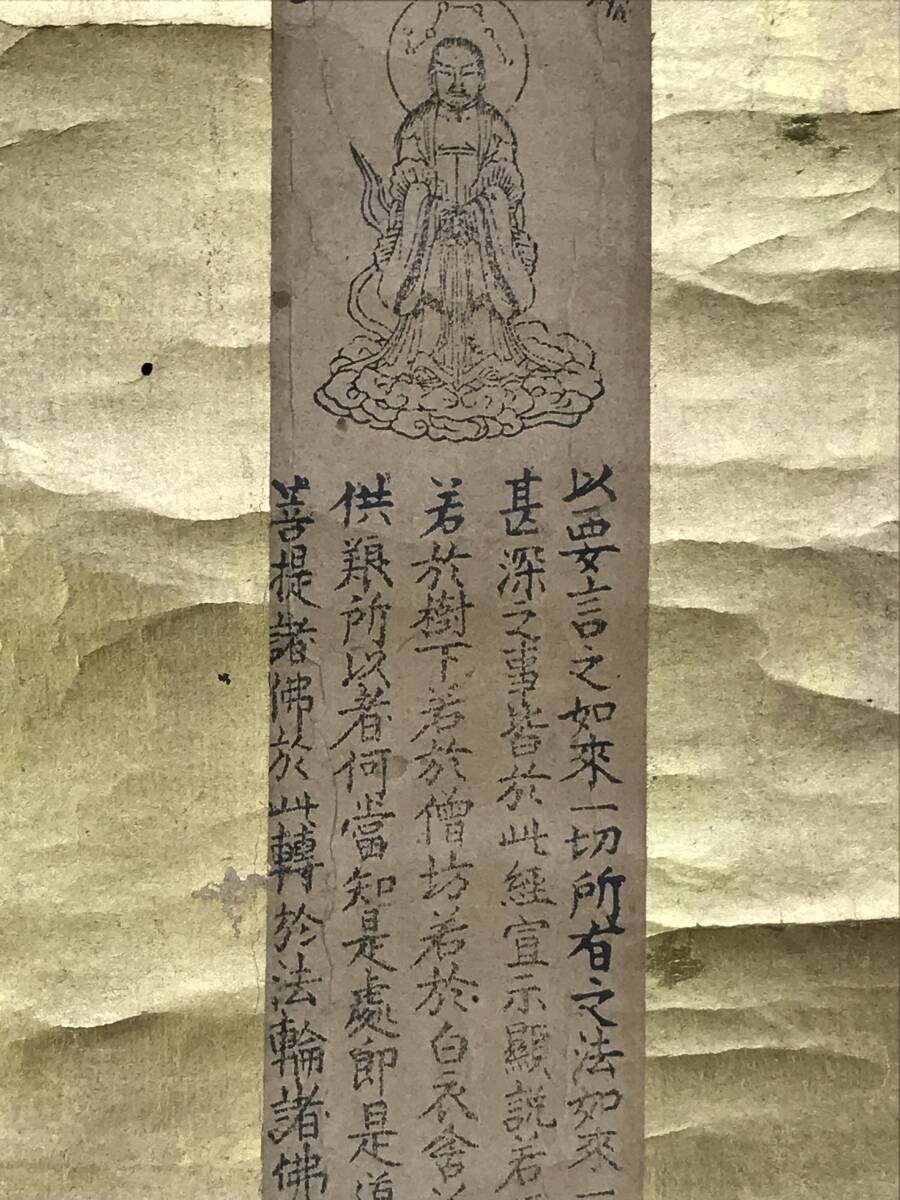 以要言之如來一切所有之法如來一
甚深之事皆於此經宣示顯説若
若於樹下若於僧坊若於白衣舍
供養所以者何當知是處即是道
菩提諸佛於此轉於法輪諸佛